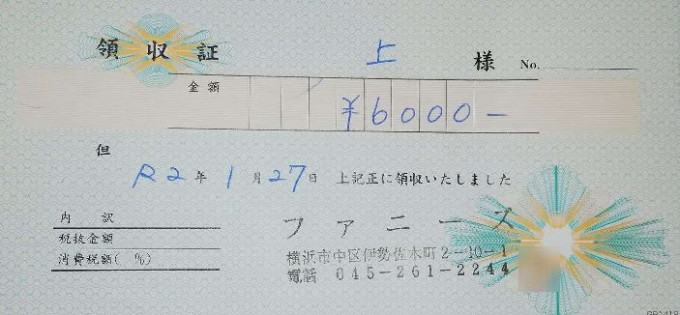 領収証 上 様 No.
金額 ¥6000-
但
R2年1月27日 上記正に領収いたしました
内 訳
税抜金額
消費税額( %)
ファニーズ
横浜市中区伊勢佐木町2-10-1
電話 045-261-2244